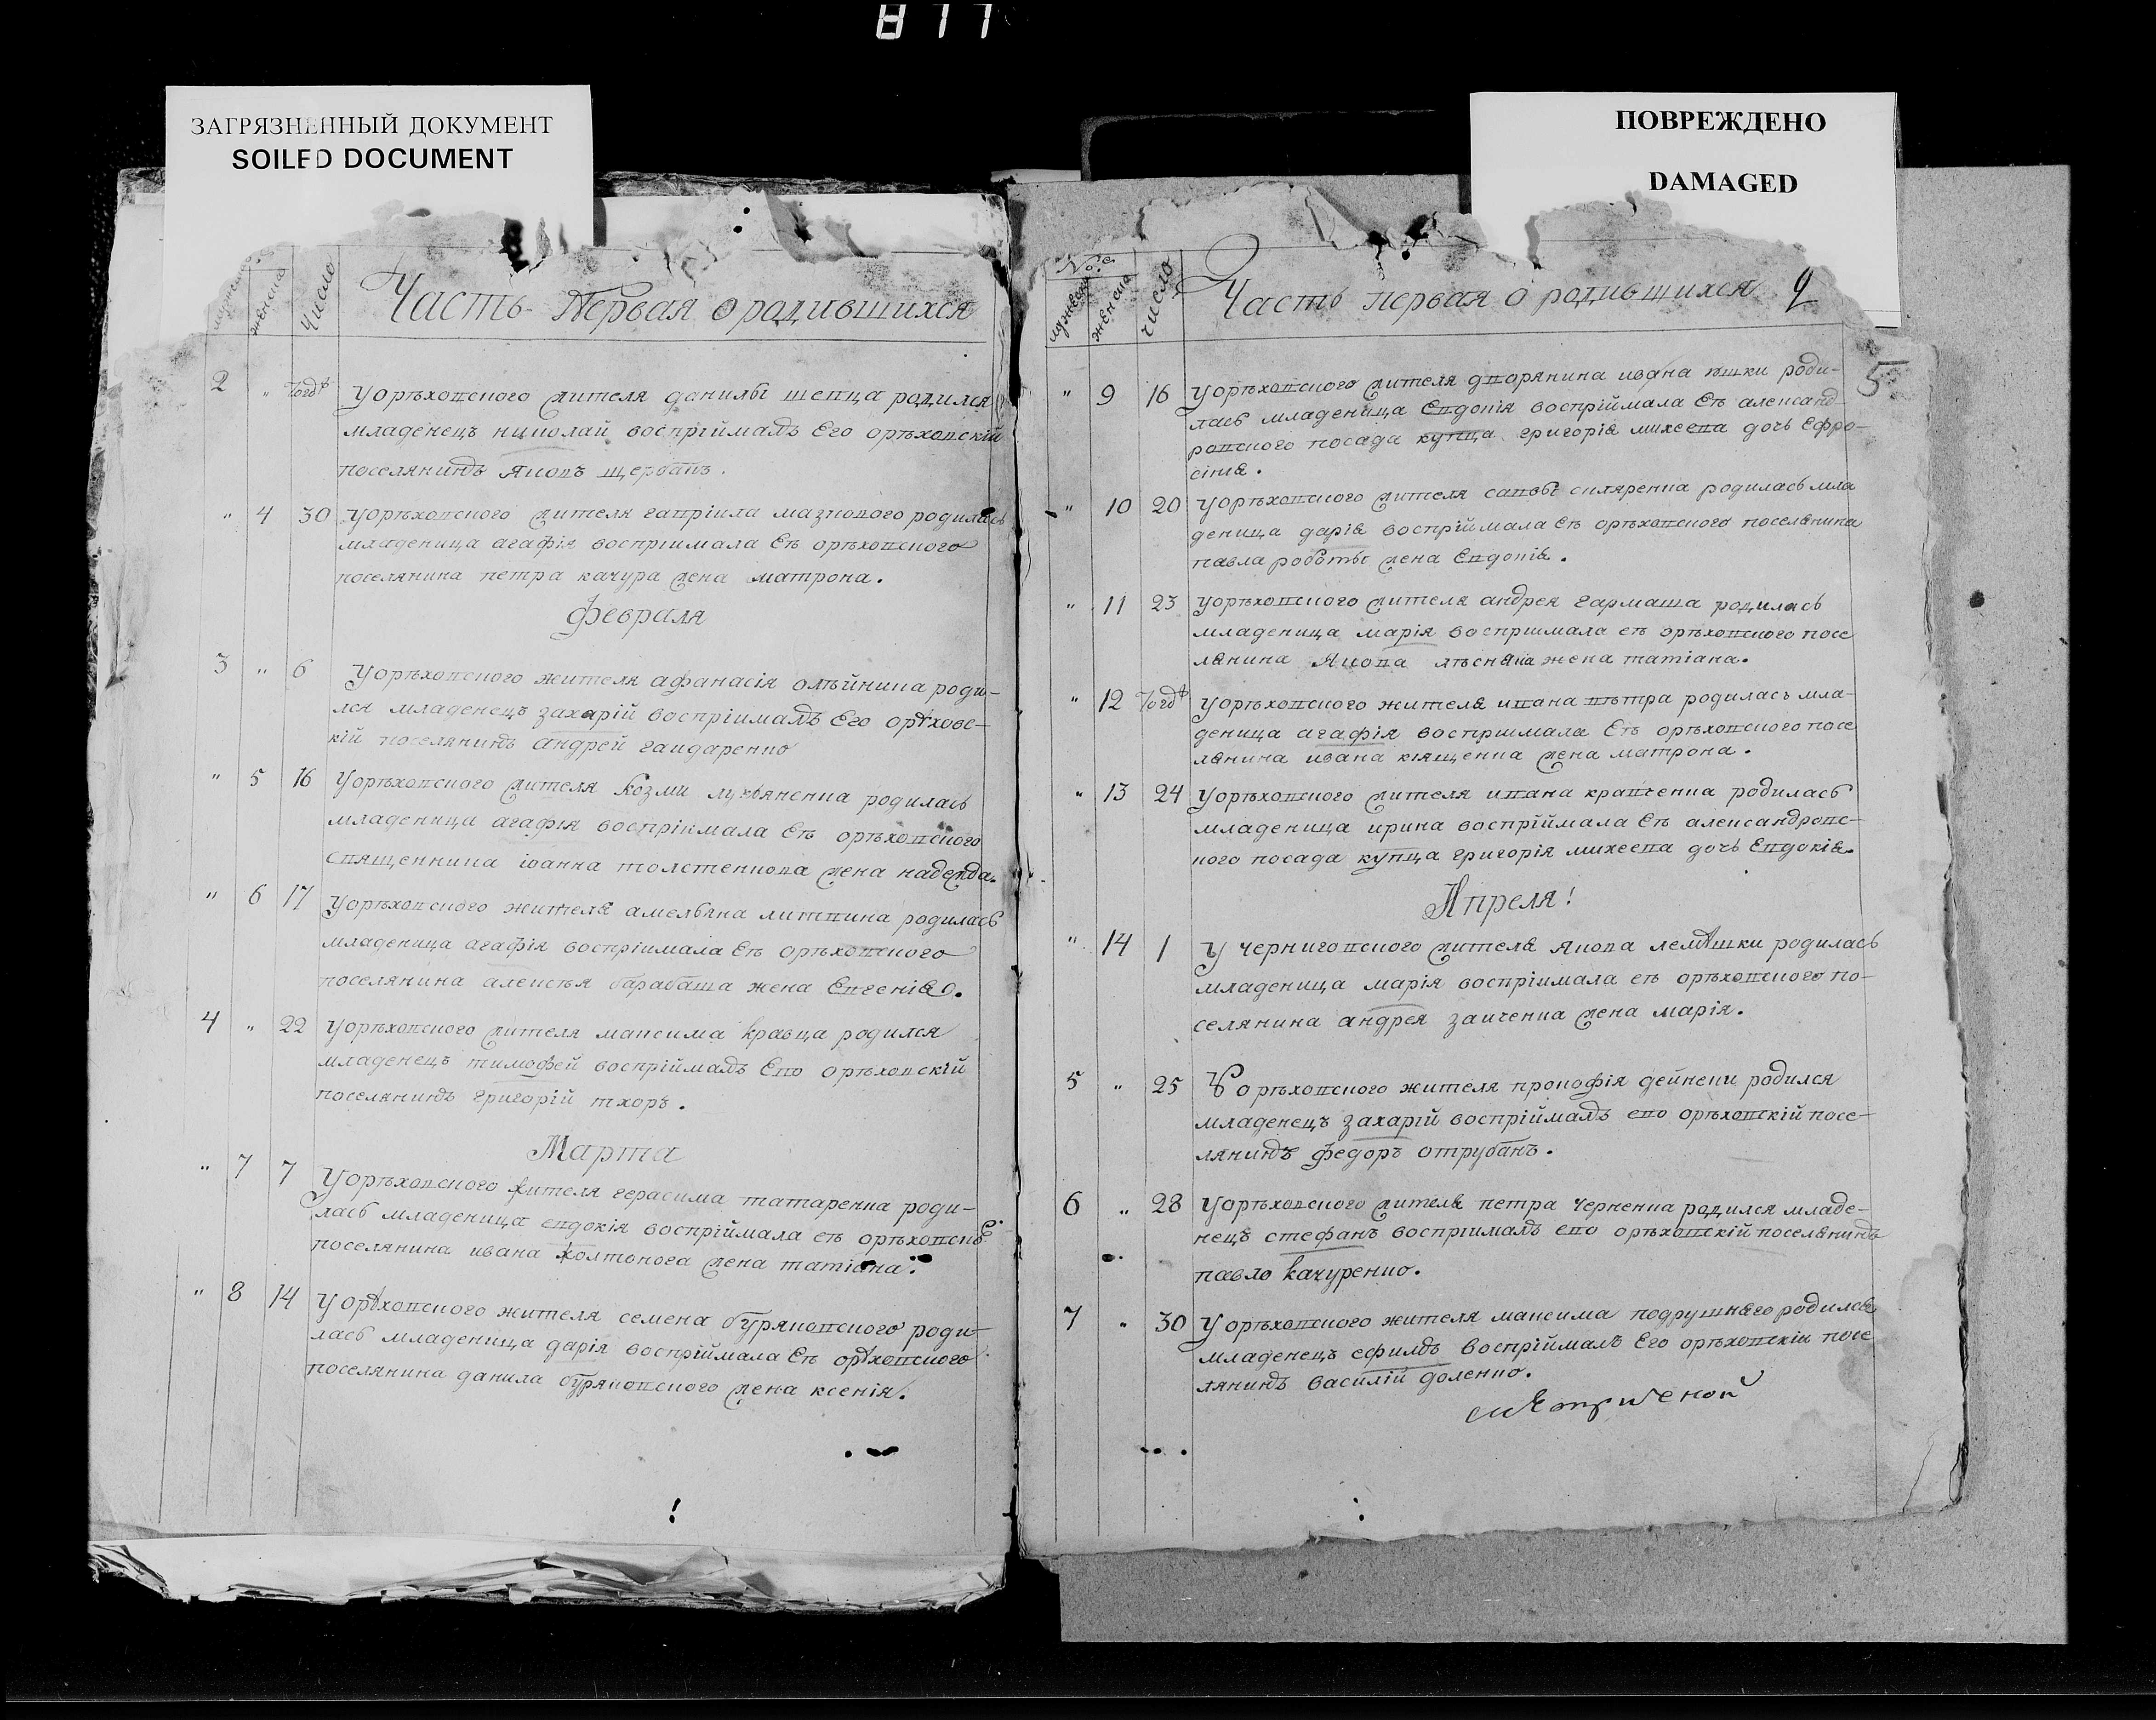 877
ЗАГРЯЗНЕННЫЙ ДОКУМЕНТ
SOILED DOCUMENT
мужеска
женска
число
Часть Первая о родившихся
2 " Тогдѣ Уорѣховского жителя данилы шевца родился
младенецъ николай воспрїймалъ Его орѣховскій
поселянинъ Яковъ щербанъ.
" 4 30 Уорѣховского жителя гаврїила мазнового родилась
младеница агафїя воспрїимала Еѣ орѣховского
поселянина петра качура жена матрона.
Февраля
3 " 6 Уорѣховского жителя афанасїя олѣйника роди-
лся младенецъ захарїй воспрїималъ Его орѣховс-
кїй поселянинъ андрей гайдаренко
" 5 16 Уорѣховского жителя козми лукьяненка родилась
младеница агафїя воспрїимала Еѣ орѣховского
священника їоанна толстенкова жена надежда.
" 6 17 Уорѣховского жителя амельяна литвина родилась
младеница агафїя воспрїимала Еѣ орѣховского
поселянина алексѣя барабаша жена Евгенїя.
4 " 22 Уорѣховского жителя максима кравца родился
младенецъ тимофей воспрїймалъ Ево орѣховскїй
поселянинъ григорїй тхоръ.
Марта
" 7 7 Уорѣховского жителя герасима татаренка роди-
лась младеница евдокїя воспрїймала еѣ орѣховског
поселянина ивана колтонога жена татїана.
" 8 14 Уорѣховского жителя семена буряковского роди-
лась младеница дарїя воспрїймала Еѣ орѣховского
поселянина данила буряковского жена ксенїя.
ПОВРЕЖДЕНО
DAMAGED
№:
мужеска
женска
число
Часть первая о родившихся 2
5
" 9 16 Уорѣховского жителя дворянина ивана юшки роди-
лась младеница Евдокїя воспрїймала Еѣ александ-
ровского посада купца григорїя михеева дочь Ефро-
сїнїя.
" 10 20 Уорѣховского жителя саввы скляренка родилась мла
деница дарїя воспрїймала Еѣ орѣховского поселянина
павла роботы жена Евдокїя.
" 11 23 Уорѣховского жителя андрея гармаша родилась
младеница марїя воспрїимала еѣ орѣховского посе
лянина Якова жена татїана.
" 12 Тогдѣ Уорѣховского жителя ивана вѣтра родилась мла-
деница агафїя воспрїимала Еѣ орѣховского посе
лянина ивана кїященка жена матрона.
" 13 24 Уорѣховского жителя ивана кравченка родилась
младеница ирина воспрїймала Еѣ александровс-
кого посада купца григорїя михеева дочь Евдокїя.
Апреля!
" 14 1 У черниговского жителя Якова лемѣшки родилась
младеница марїя воспрїимала еѣ орѣховского по-
селянина андрея заиченка жена марїя.
5 " 25 У орѣховского жителя прокофїя дейнеки родился
младенецъ захарїй воспрїймалъ ево орѣховскїй посе-
лянинъ федоръ отрубанъ.
6 " 28 Уорѣховского жителя петра черненка родился младе-
нецъ стефанъ воспрїималъ ево орѣховскїй поселянинъ
павло качуренко.
7 " 30 Уорѣховского жителя максима подрушняго родился
младенецъ ефимъ воспрїймалъ Его орѣховскїи посе
лянинъ василїй доленко.